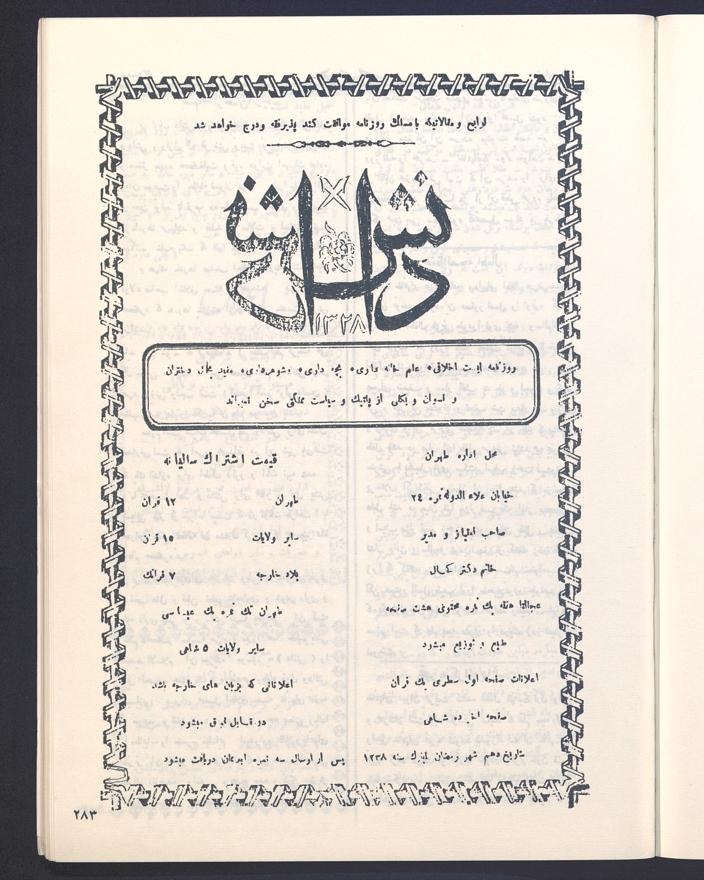 لوایح و مقالاتیکه با مسلك روزنامه موافقت کند پذیرفته و درج خواهد شد
دانش
۱۳۲۸
روزنامه ایست اخلاقی علم خانه داری بچه داری شوهرداری مفید بحال دختران
و نسوان و بکلی از پلتیك و سیاست مملکتی سخن نمیراند
محل اداره طهران
خیابان علاء الدوله نمره ۲٤
صاحب امتیاز و مدیر
خانم دکتر کحال
عجالتا هفته یك نمره محتوی هشت صفحه
طبع و توزیع میشود
اعلانات صفحه اول سطری یك قران
صفحه آخر ده شاهی
بتاریخ دهم شهر رمضان المبارك سنه ۱۳۲۸
قیمت اشتراك سالیانه
طهران ۱۲ قران
سایر ولایات ۱۵ قران
بلاد خارجه ۷ فرانك
طهران تك نمره یك عباسی
سایر ولایات ۵ شاهی
اعلاناتی که بزبان های خارجه باشد
دو مقابل فوق میشود
پس از ارسال سه نمره آبونمان دریافت میشود
۲۸۳